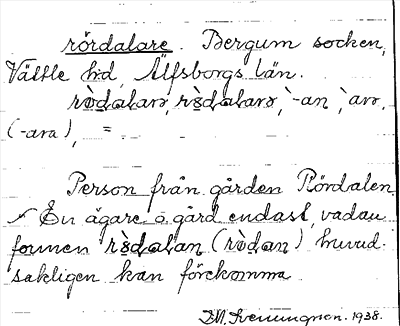 rördalare. Bergum socken,
Vättle hd, Älfsborgs län.
rö̀dalarə, rö̀dalarə, `-an `arə,
(-ara), =
Person från gården Rördalen.
En ägare å gård endast, vadan
formen rö̀dalan (rö̀dan) huvud-
sakligen kan förekomma.
1938.